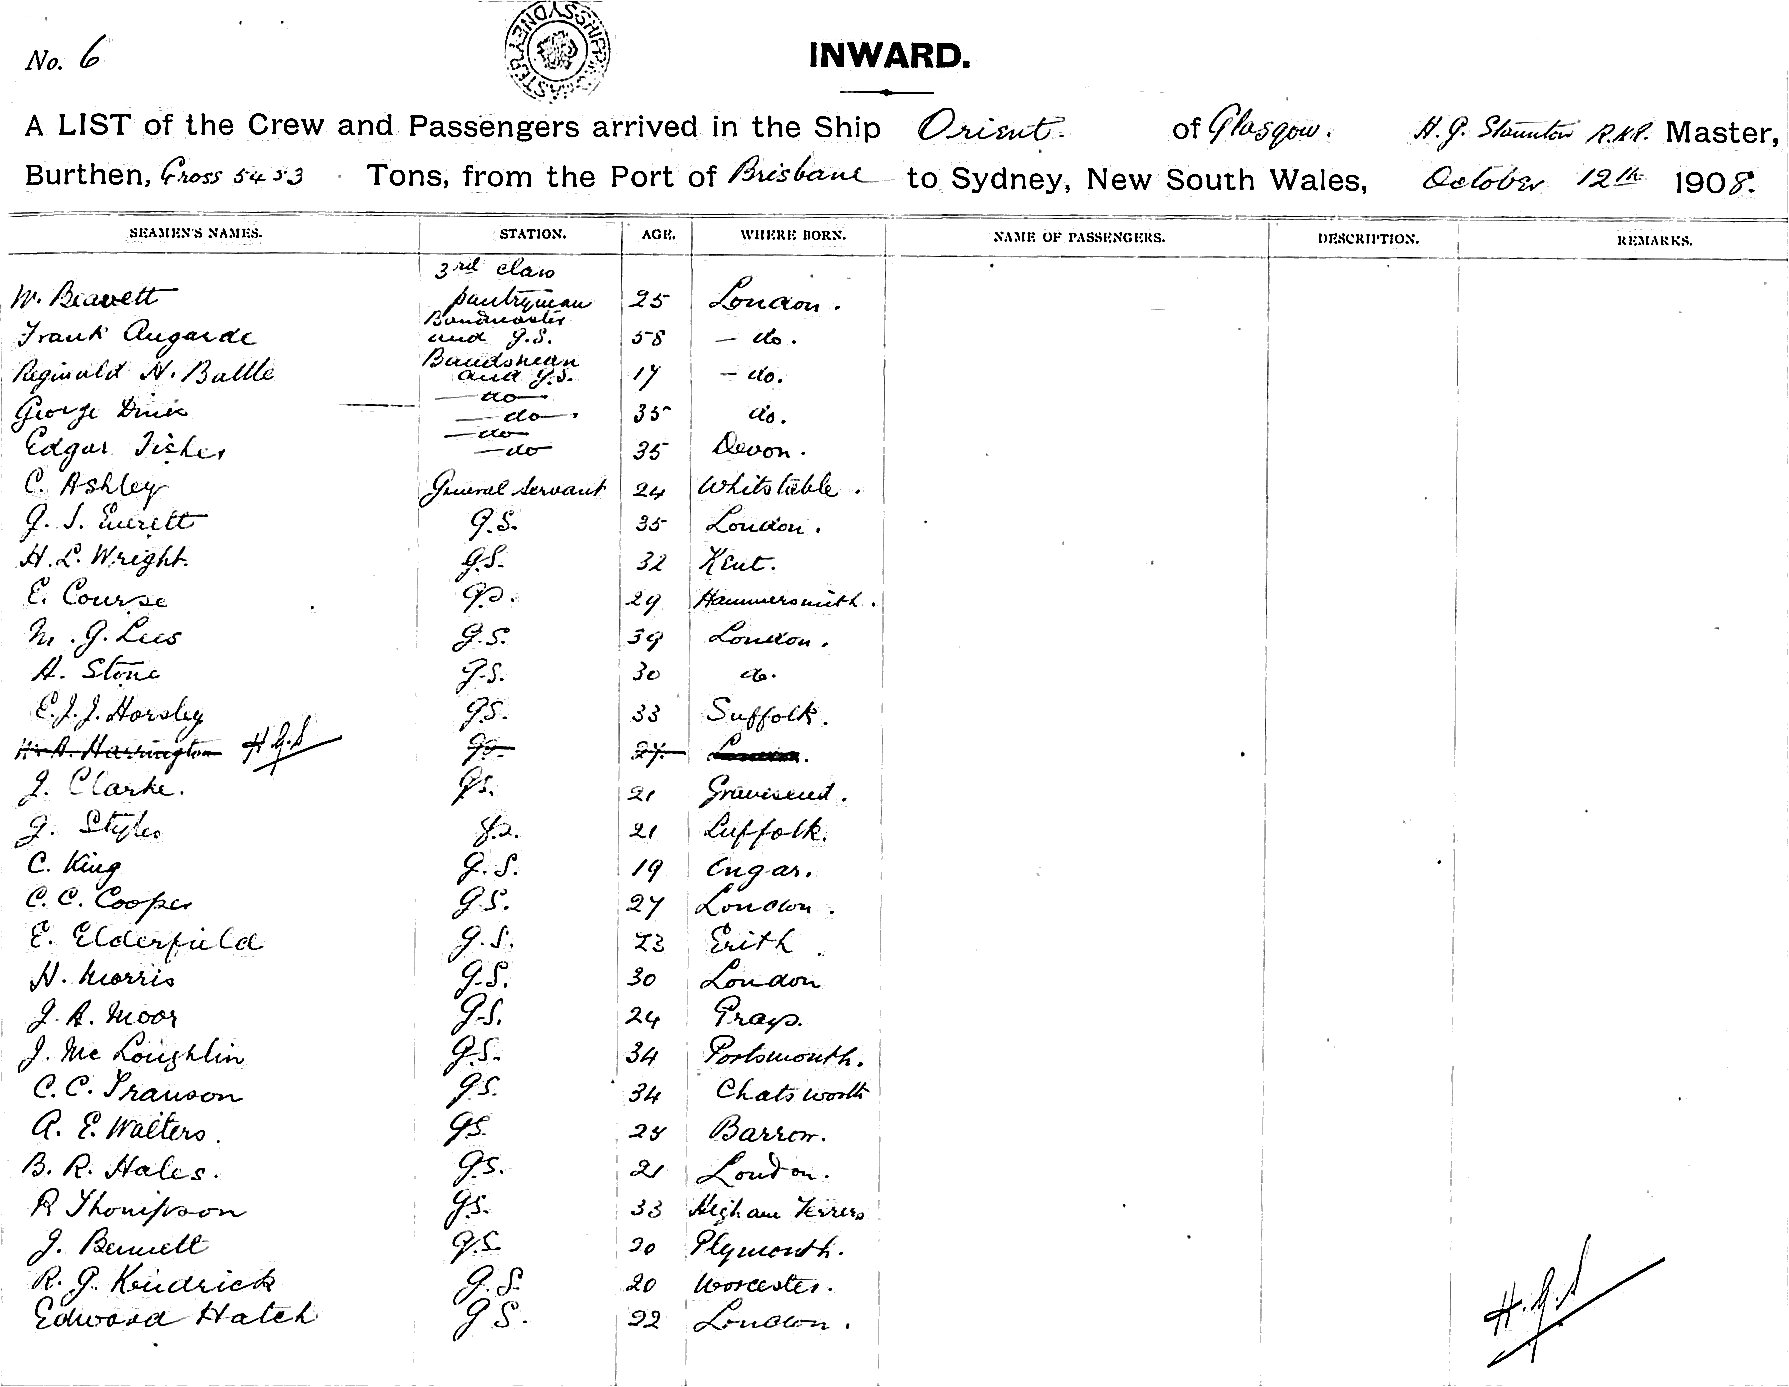 No. 6
INWARD.
A LIST of the Crew and Passengers arrived in the Ship Orient. of Glasgow. H. G. Staunton R.N.R. Master,
Burthen, Gross 5453 Tons, from the Port of Brisbane to Sydney, New South Wales, October 12th 1908.
SEAMEN'S NAMES. STATION. AGE. WHERE BORN. NAME OF PASSENGERS. DESCRIPTION. REMARKS.
3rd class
W. pantryman 25 London.
Bandmaster
Frank Augarde and G.S. 58 - do.
Bandsman
Reginald H. Battle and G.S. 17 - do.
- do -
George - do - 35 do.
- do -
Edgar Fisher - do 35 Devon.
C. Ashley General Servant 24 Whitstable.
G. S. Everett G.S. 35 London.
H. L. Wright. G.S. 32 Kent.
E. Course G.S. 29 Hammersmith.
M. G. Lees G.S. 39 London.
A. Stone G.S. 30 do.
E. J. J. Horsley G.S. 33 Suffolk.
W. A. Harrington H G S G.S. 27 London.
J. Clarke. G.S. 21 Gravesend.
J. Styles G.S. 21 Suffolk.
C. King G.S. 19 Ongar.
C. C. Cooper G.S. 27 London.
E. Elderfield G.S. 23 Erith
H. Morris G.S. 30 London
J. A. Moor G.S. 24 Grays.
J. Mc Loughlin G.S. 34 Portsmouth.
C. C. Transon G.S. 34 Chatsworth
A. E. Walters. G.S. Barrow.
B. R. Hales. G.S. 21 London.
R Thompson G.S. 33 Higham Ferrers
J. Bennett G.S. 20 Plymouth.
R. G. Kendrick G.S. 20 Worcester.
Edward Hatch G.S. 22 London.
H. G. S